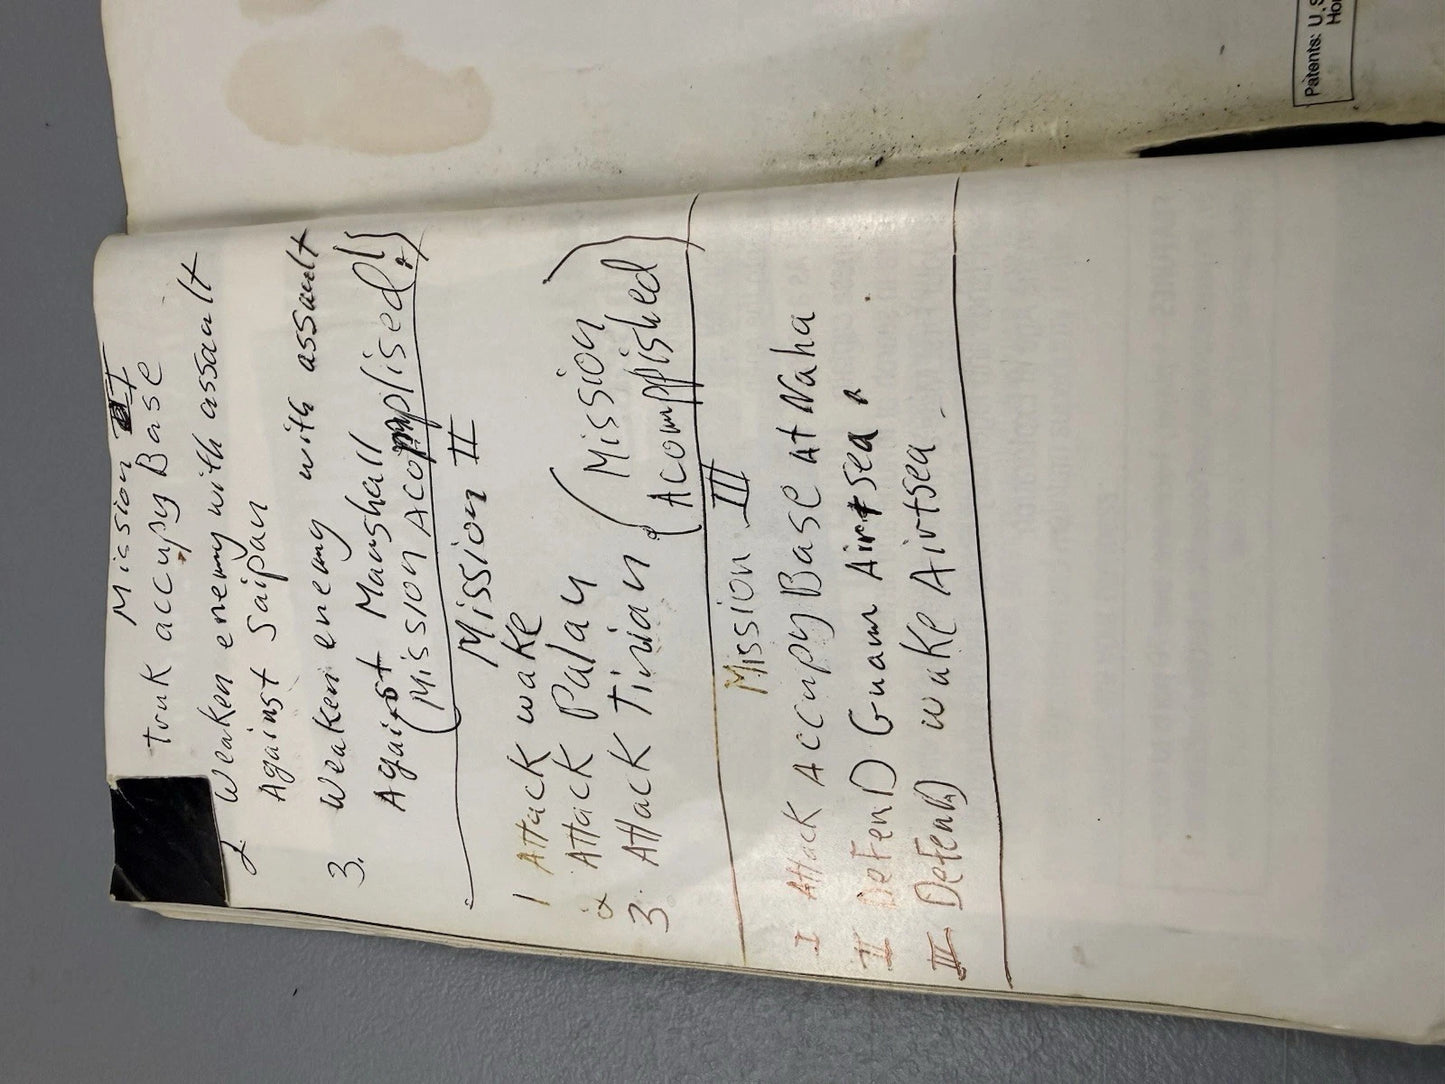 Mission I
Truk accupy Base
2 Weaken enemy with assault
Against Saipan
3. Weaken enemy with assault
Against Marshall
(Mission Acomplised!!)
Mission II
1 Attack wake
2 Attack Palau
3. Attack Tinian (Mission
Acompplished)
Mission III
I Attack Accupy Base At Naha
II Defend Guam Air+sea
III Defend wake Air+sea
Patents: U.S